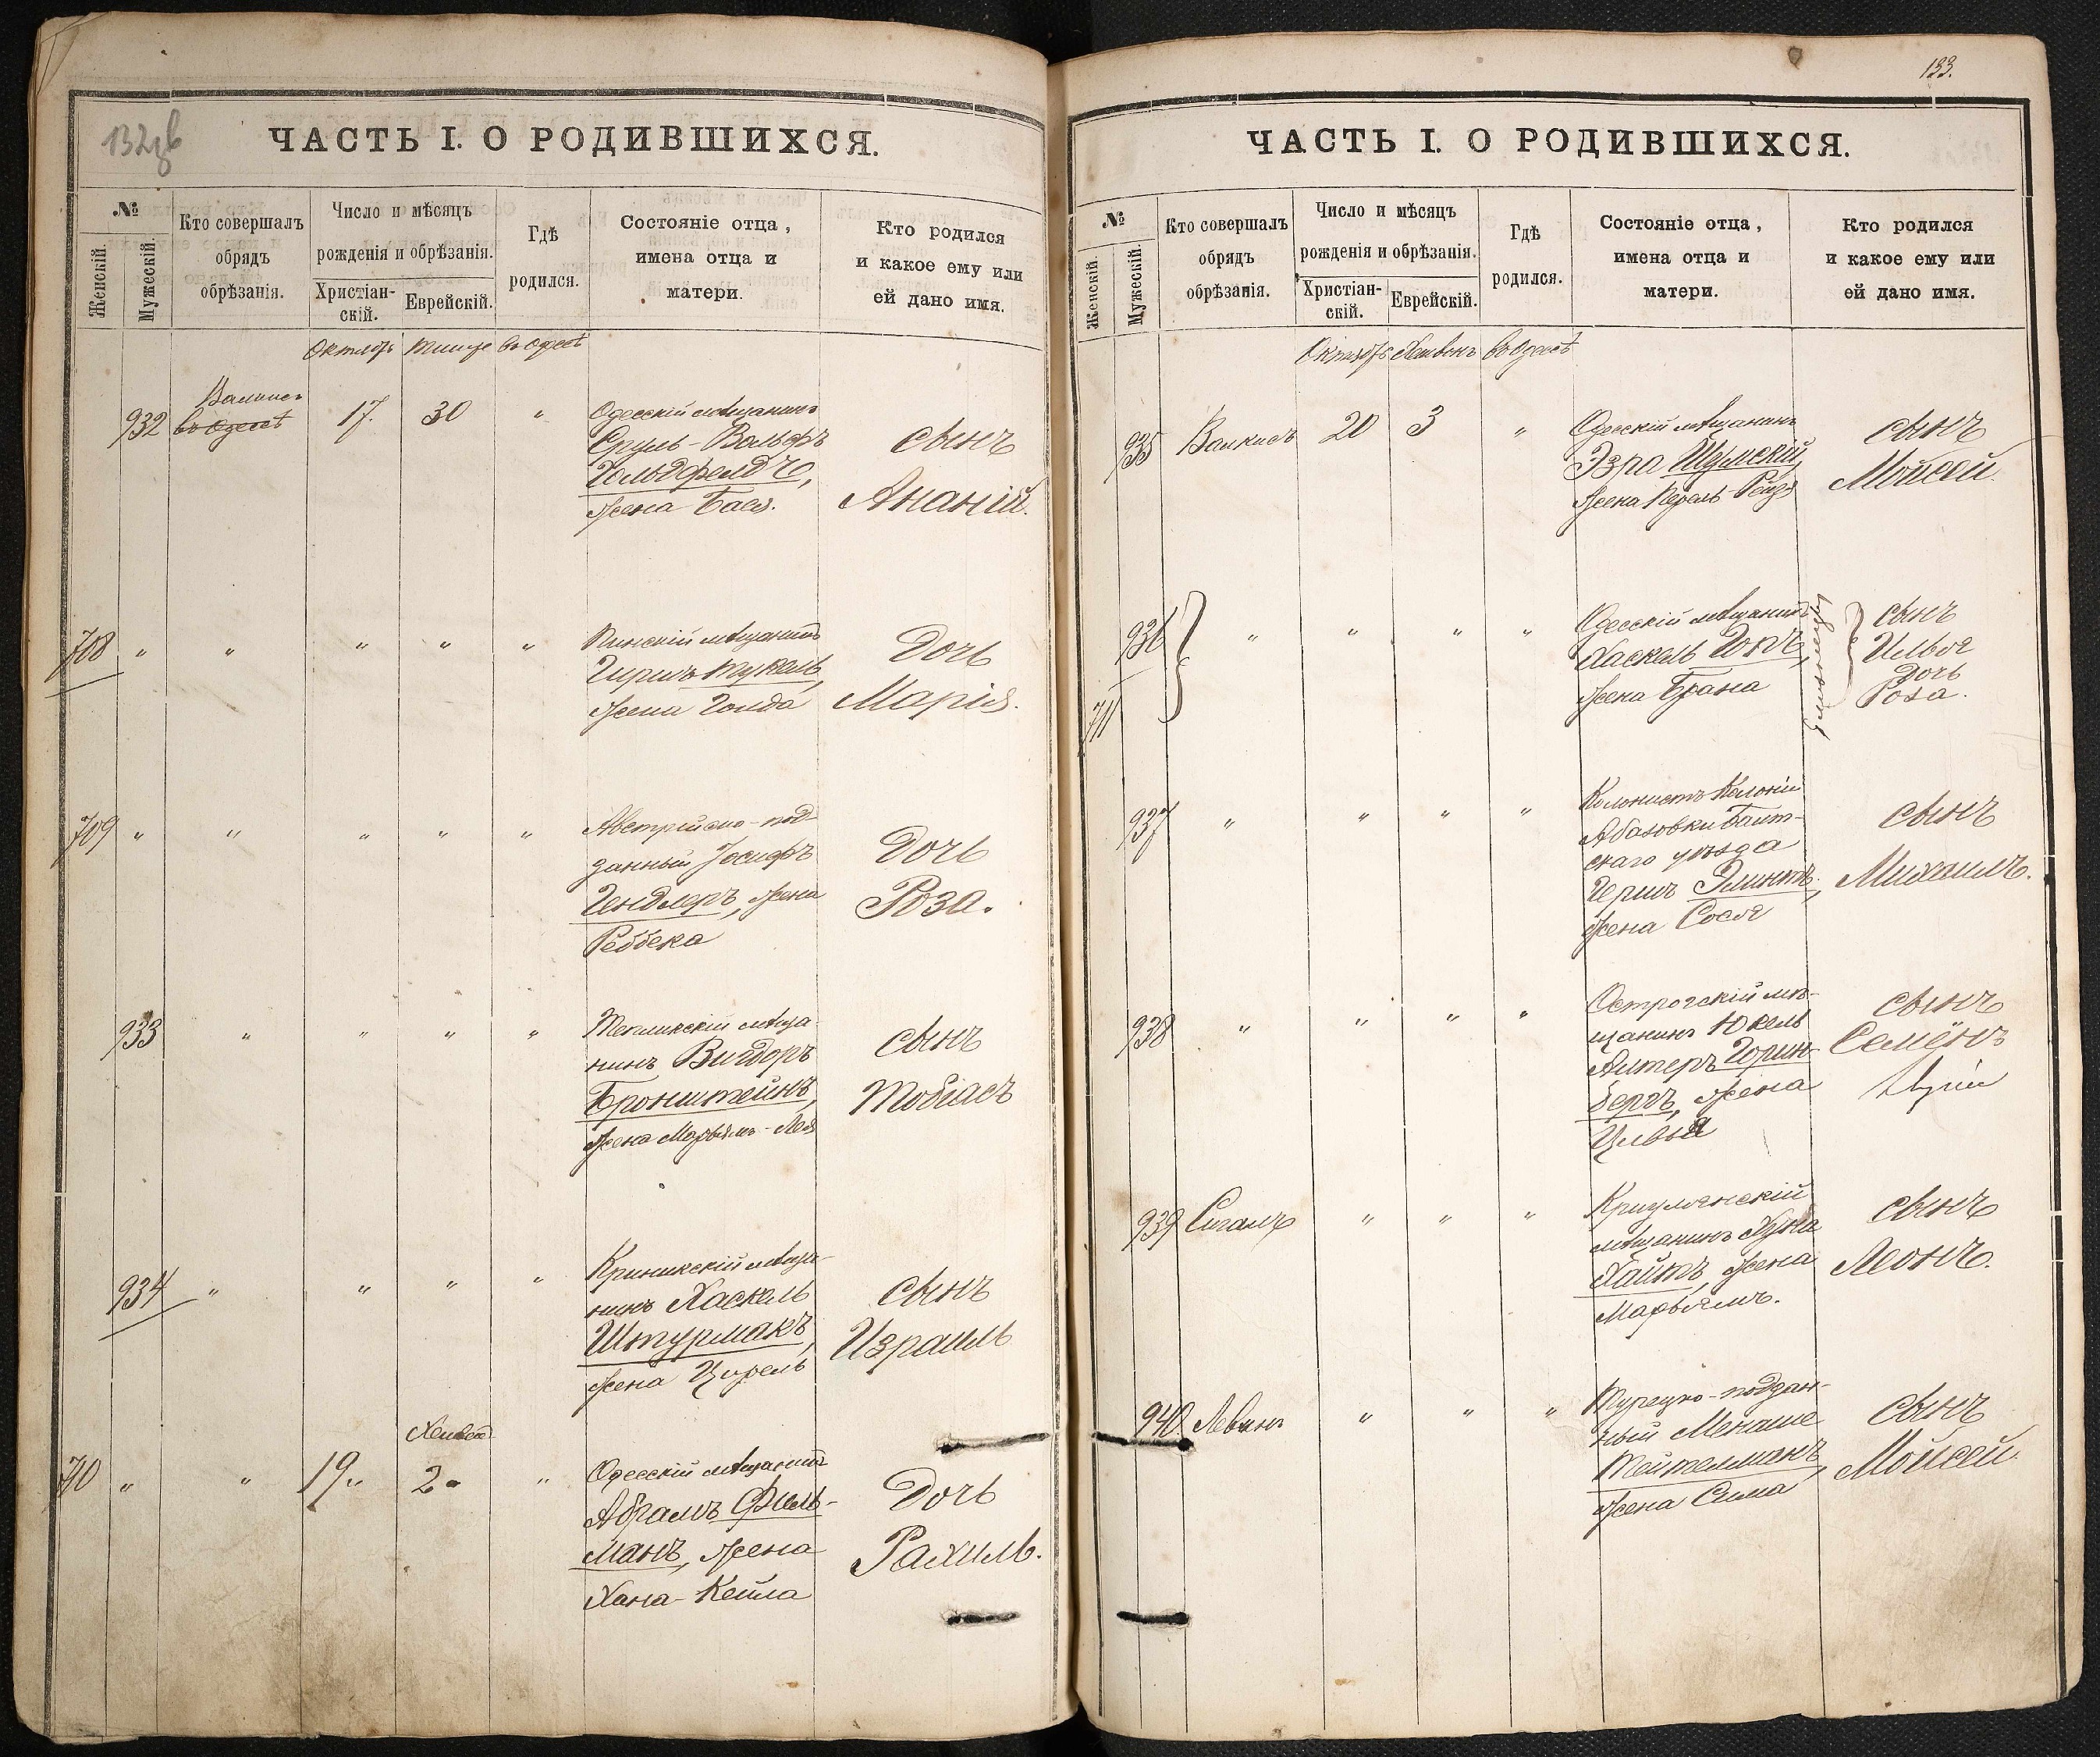 132 об
ЧАСТЬ I. О РОДИВШИХСЯ.
№
Женскій.
Мужескій.
Кто совершалъ
обрядъ
обрѣзанія.
Число и мѣсяцъ
рожденія и обрѣзанія.
Христіан-
скій.
Еврейскій.
Гдѣ
родился.
Состояніе отца,
имена отца и
матери.
Кто родился
и какое ему или
ей дано имя.
Октябрь Тишре въ Одессѣ
932 въ Одессѣ 17. 30 "
Одесскій мѣщанинъ
Сруль-Вольфъ
Гольдфельдъ,
жена Бася.
сынъ
Ананій.
708 " " " " "
Пинскій мѣщанинъ
Гиршъ Тукель,
жена Голда
Дочь
Марія.
709 " " " " "
Австрійско-под-
данный Іосифъ
Гендлеръ, жена
Реббека
Дочь
Роза.
933 " " " "
Тепликскій мѣща-
нинъ Вигдоръ
Бронштейнъ,
жена Марьямъ-Лея
сынъ
Тобіасъ
934 " " " "
мѣща-
нинъ Хаскель
Штурмакъ,
жена Цирель
сынъ
Израиль
710 " " 19 " 2 "
Одесскій мѣщанинъ
Абрамъ Фиель-
манъ, жена
Хана-Кейла
Дочь
Рахиль.
133.
ЧАСТЬ I. О РОДИВШИХСЯ.
№
Женскій.
Мужескій.
Кто совершалъ
обрядъ
обрѣзанія.
Число и мѣсяцъ
рожденія и обрѣзанія.
Христіан-
скій.
Еврейскій.
Гдѣ
родился.
Состояніе отца,
имена отца и
матери.
Кто родился
и какое ему или
ей дано имя.
Октябрь Хешвенъ въ Одессѣ
935 20 3 "
Одесскій мѣщанинъ
Эзра Шумскій,
жена Перель-Рейзя
сынъ
Мойсей.
936 711 " " " "
Одесскій мѣщанинъ
Хаскель Гопъ,
жена Брана
близнецы
сынъ
Илья
Дочь
Роза.
937 " " " "
Колонистъ Колоніи
Абазовки Балт-
скаго уѣзда
Гершъ Глинтъ,
жена Сося
сынъ
Михаилъ.
938 " " " "
Острогскій мѣ-
щанинъ Юкель
Алтеръ Горин-
бергъ, жена
Цивья
сынъ
Семёнъ
939 Сигалъ " " "
Криулянскій
мѣщанинъ Хуна
Хаитъ, жена
Марьямъ.
сынъ
Леонъ.
940. Левинъ " " "
Турецко-поддан-
ный Менаше
Тейтелманъ,
жена Сима
сынъ
Мойсей.